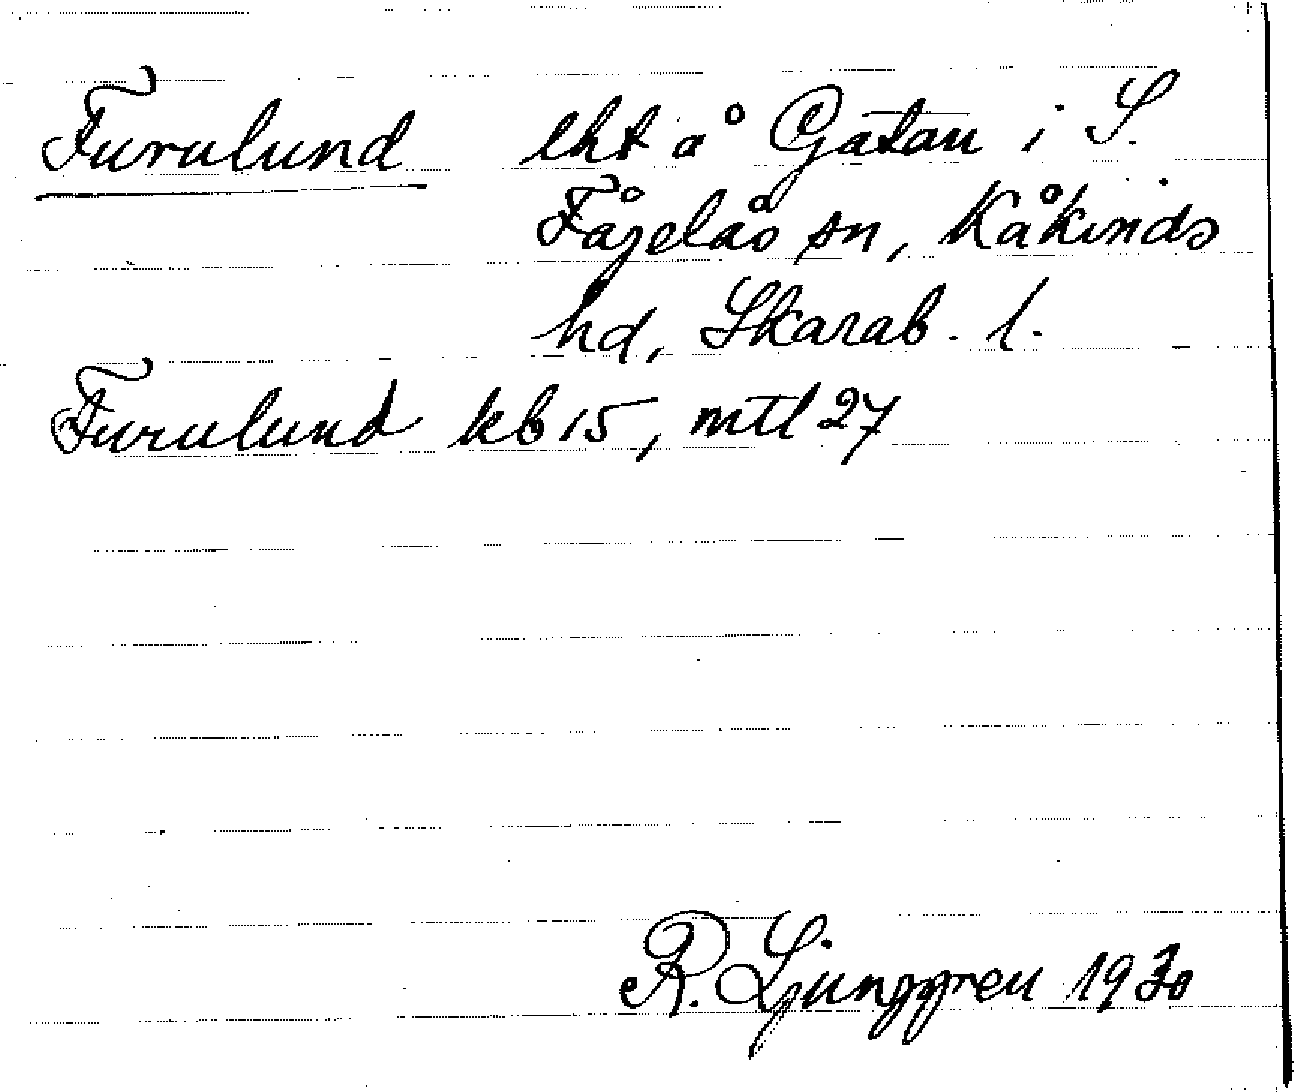 Furulund lht å Gatan i S.
Fågelås sn, Kåkinds
hd, Skarab. l.
Furulund kb 15, mtl 27
R. Ljunggren 1930